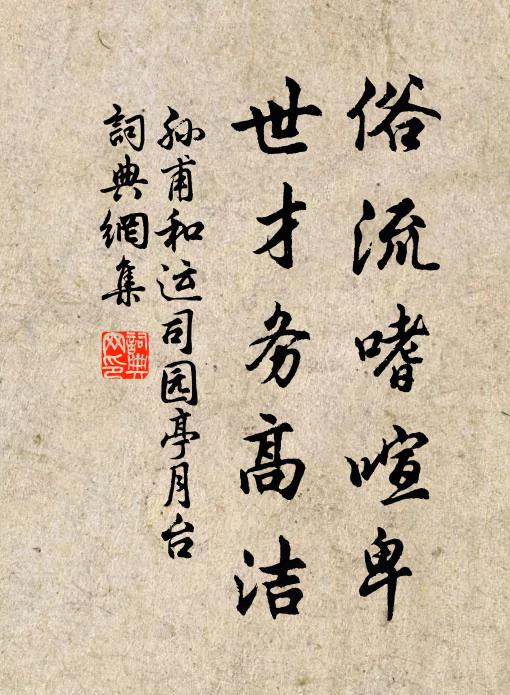 俗流嗜喧卑
世才务高洁
孙甫和运司园亭月台
詞典網集
詞典
网印